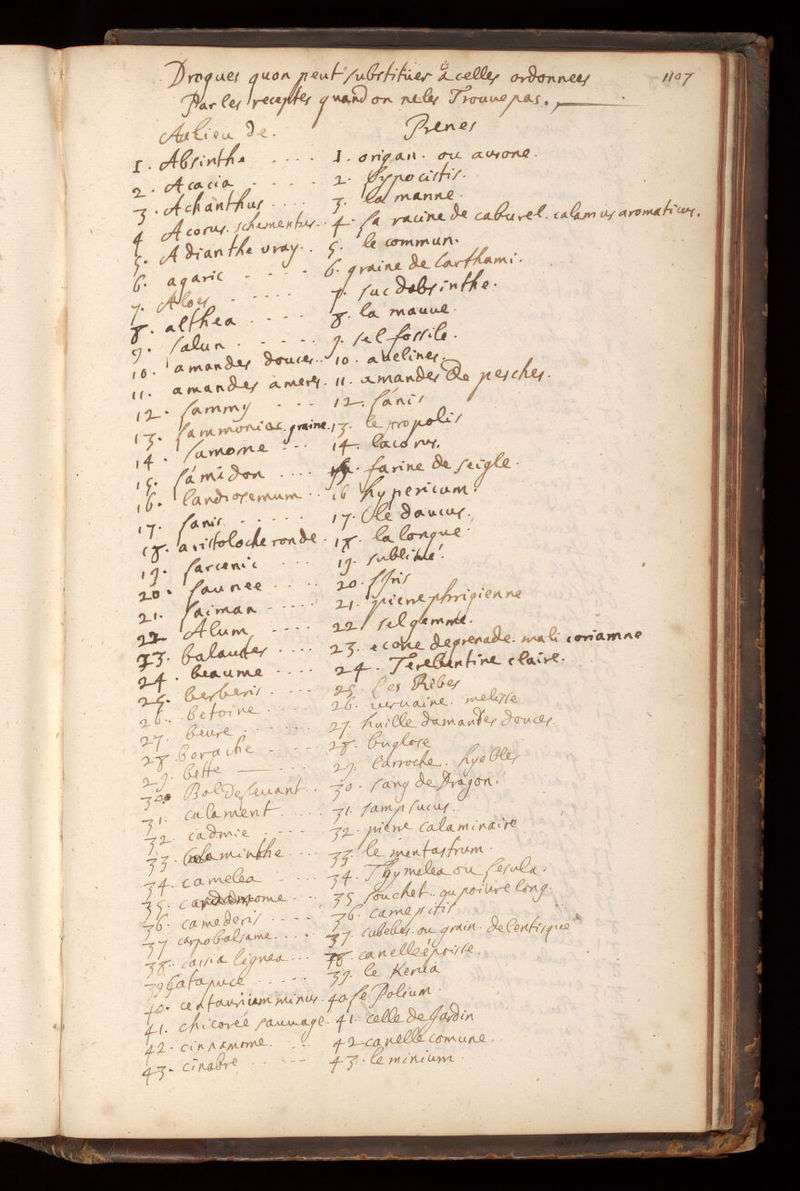 Drogues quon peut substituer à celles ordonnees
Par les receptes quand on ne les Trouve pas.
1107
Au lieu De. Prenes
1. Absinthe .... 1. origan. ou aurone.
2. Acacia .... 2. hypocistis.
3. Achanthus .... 3. la manne.
4 Acorus. 4. sa racine de caburel. calamus aromaticus.
5. Adianthe vray .. 5. le commun.
6. agaric .... 6. graine de Carthami.
7. Aloes .... 7. suc dabsinthe.
8. althea .... 8. la mauue.
9. lalun .... 9. sel fossile.
10. amandes douces .. 10. auelines.
11. amandes ameres. 11. amandes de pesches.
12. lammy ... 12. lanis
13. lammoniac. graine. 13. le propolis
14. lamome ... 14. lacorus.
15. lamidon .... 15. farine de seigle.
16. landrosemum .. 16 hypericum.
17. lanis ..... 17. le daucus.
18. laristoloche ronde. 18. la longue.
19. larcenic .... 19. sublimé.
20. launee .... 20. liris
21. laiman .... 21. pierre phrigienne
22 Alum .... 22. sel gemme.
23. balaustes .... 23. ecorce de grenade. mali
24. beaume .... 24. Terebantine claire.
25. berberis .... 25 les Ribes
26. betoine .... 26. veruaine. melisse
27. beure ..... 27. huille damandes douces.
28 borache .... 28. buglose
29. bette .... 29. larroche. hyebles
30. Bol de leuant .. 30. sang de Dragon.
31. calament .... 31. sampsucus.
32. cadmie .... 32. pierre calaminaire
33. calaminthe .... 33. le mentastrum.
34. camelea .... 34. Thymelea ou lesula.
35. cardamome .. 35 souchet. ou poivre long.
36. camederis .... 36. camepitis
37 carpobalsame .... 37. cubebes. ou grain. de lentisque
38. cassia lignea ... 38. canelle
39 catapuce ..... 39. le Kerua
40. centaurium minus. 40. le Polium.
41. chicorée sauuage. 41. celle de Jardin
42. cinnamome. .. 42 canelle comune.
43. cinabre .... 43. le minium.